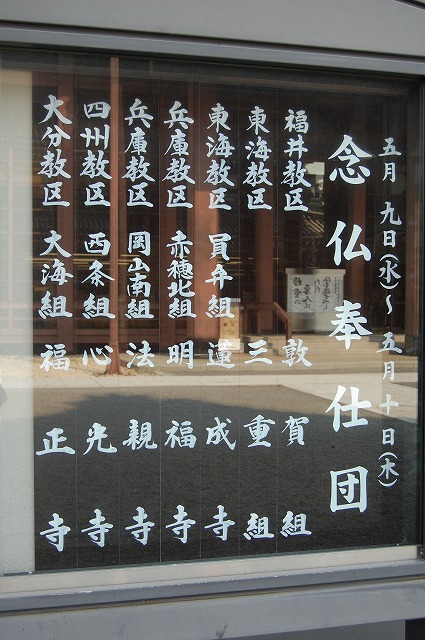 五月九日(水)～五月十日(木)
念仏奉仕団
福井教区 敦賀組
東海教区 三重組
東海教区 員弁組 蓮成寺
兵庫教区 赤穂北組 明福寺
兵庫教区 岡山南組 法親寺
四州教区 西条組 心光寺
大分教区 大海組 福正寺